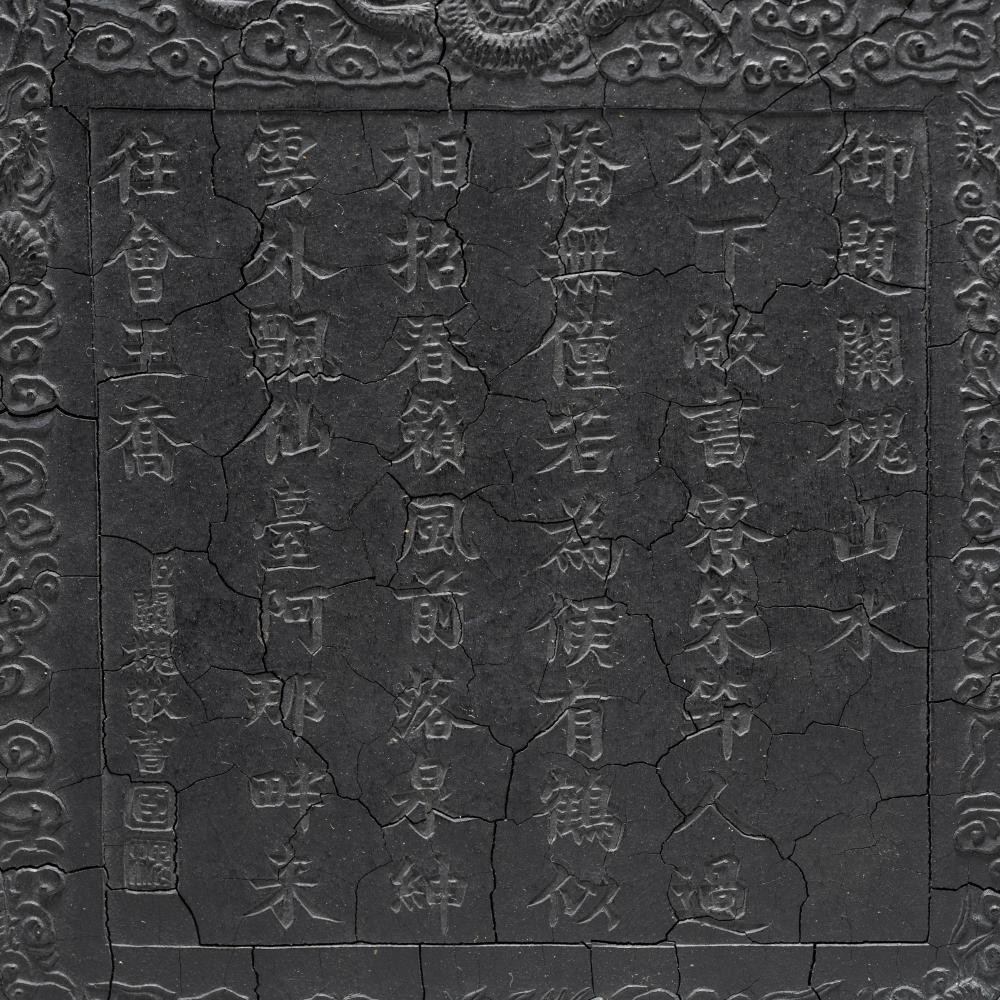 御題關槐山水
松下敞書寮策筇人過
橋無僮若為便有鶴似
相招春籟風前落泉紳
雲外飄仙臺阿那畔来
往會王喬
臣關槐敬書
臣
槐